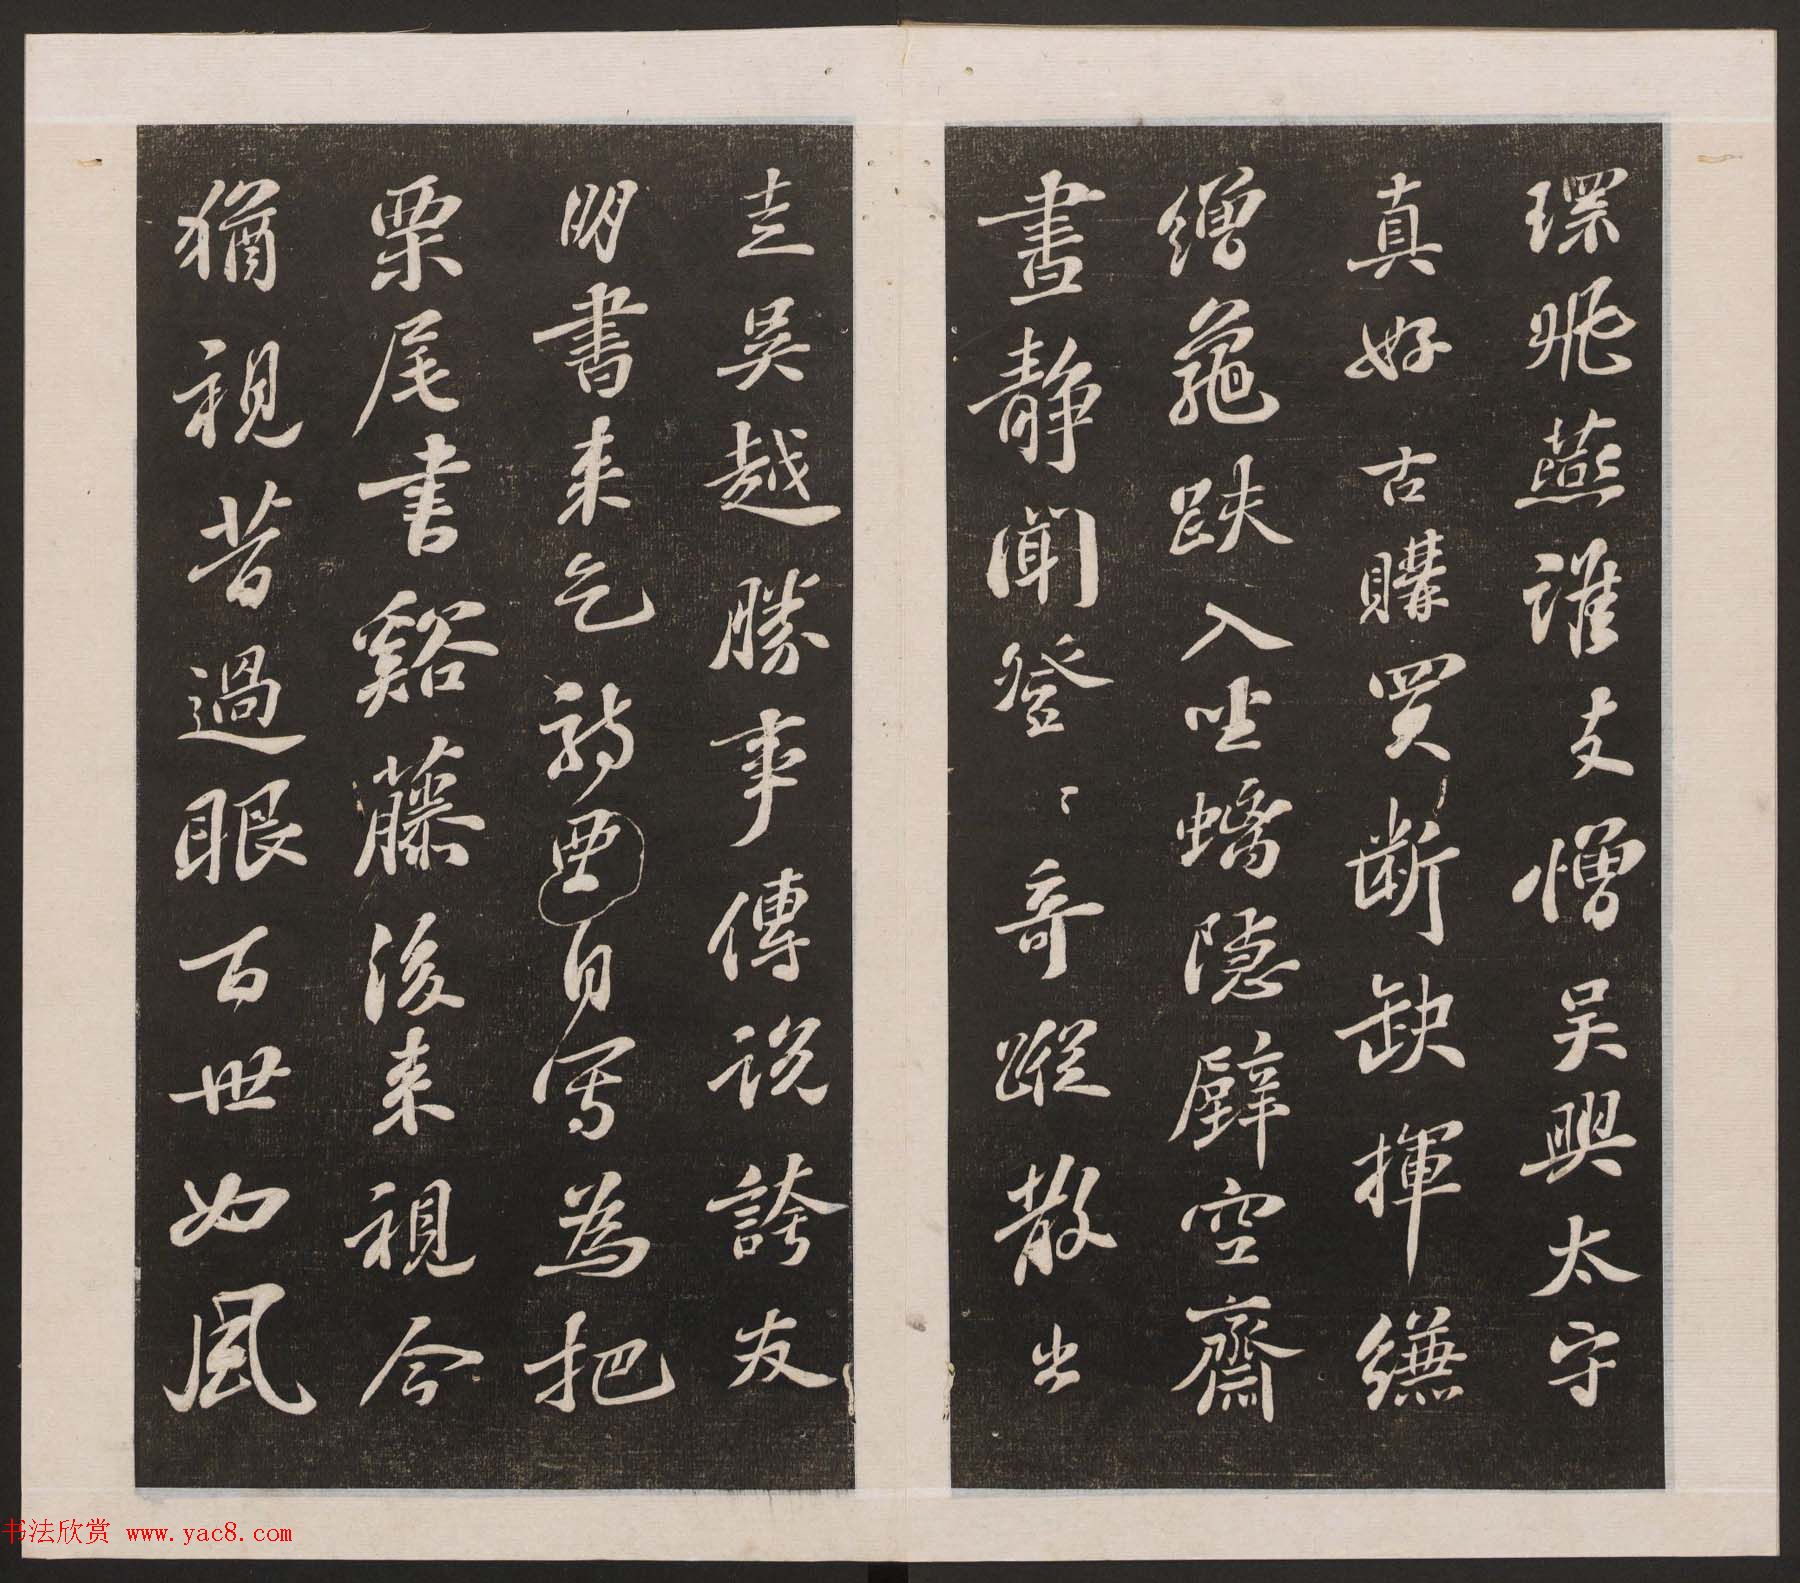 環飛燕誰支憎吳興太守
真好古購買斷缺揮縑
繒龜趺入坐螭隱壁空齋
晝静聞登〻奇蹤散出
走吴越勝事傳説誇友
朋書来乞詩要自寫為把
栗尾書谿藤後来視今
猶視昔過眼百世如風
书法欣赏 www.yac8.com